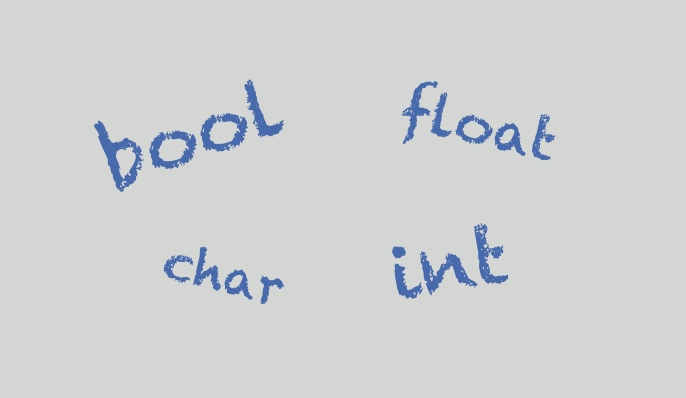 bool float
char int